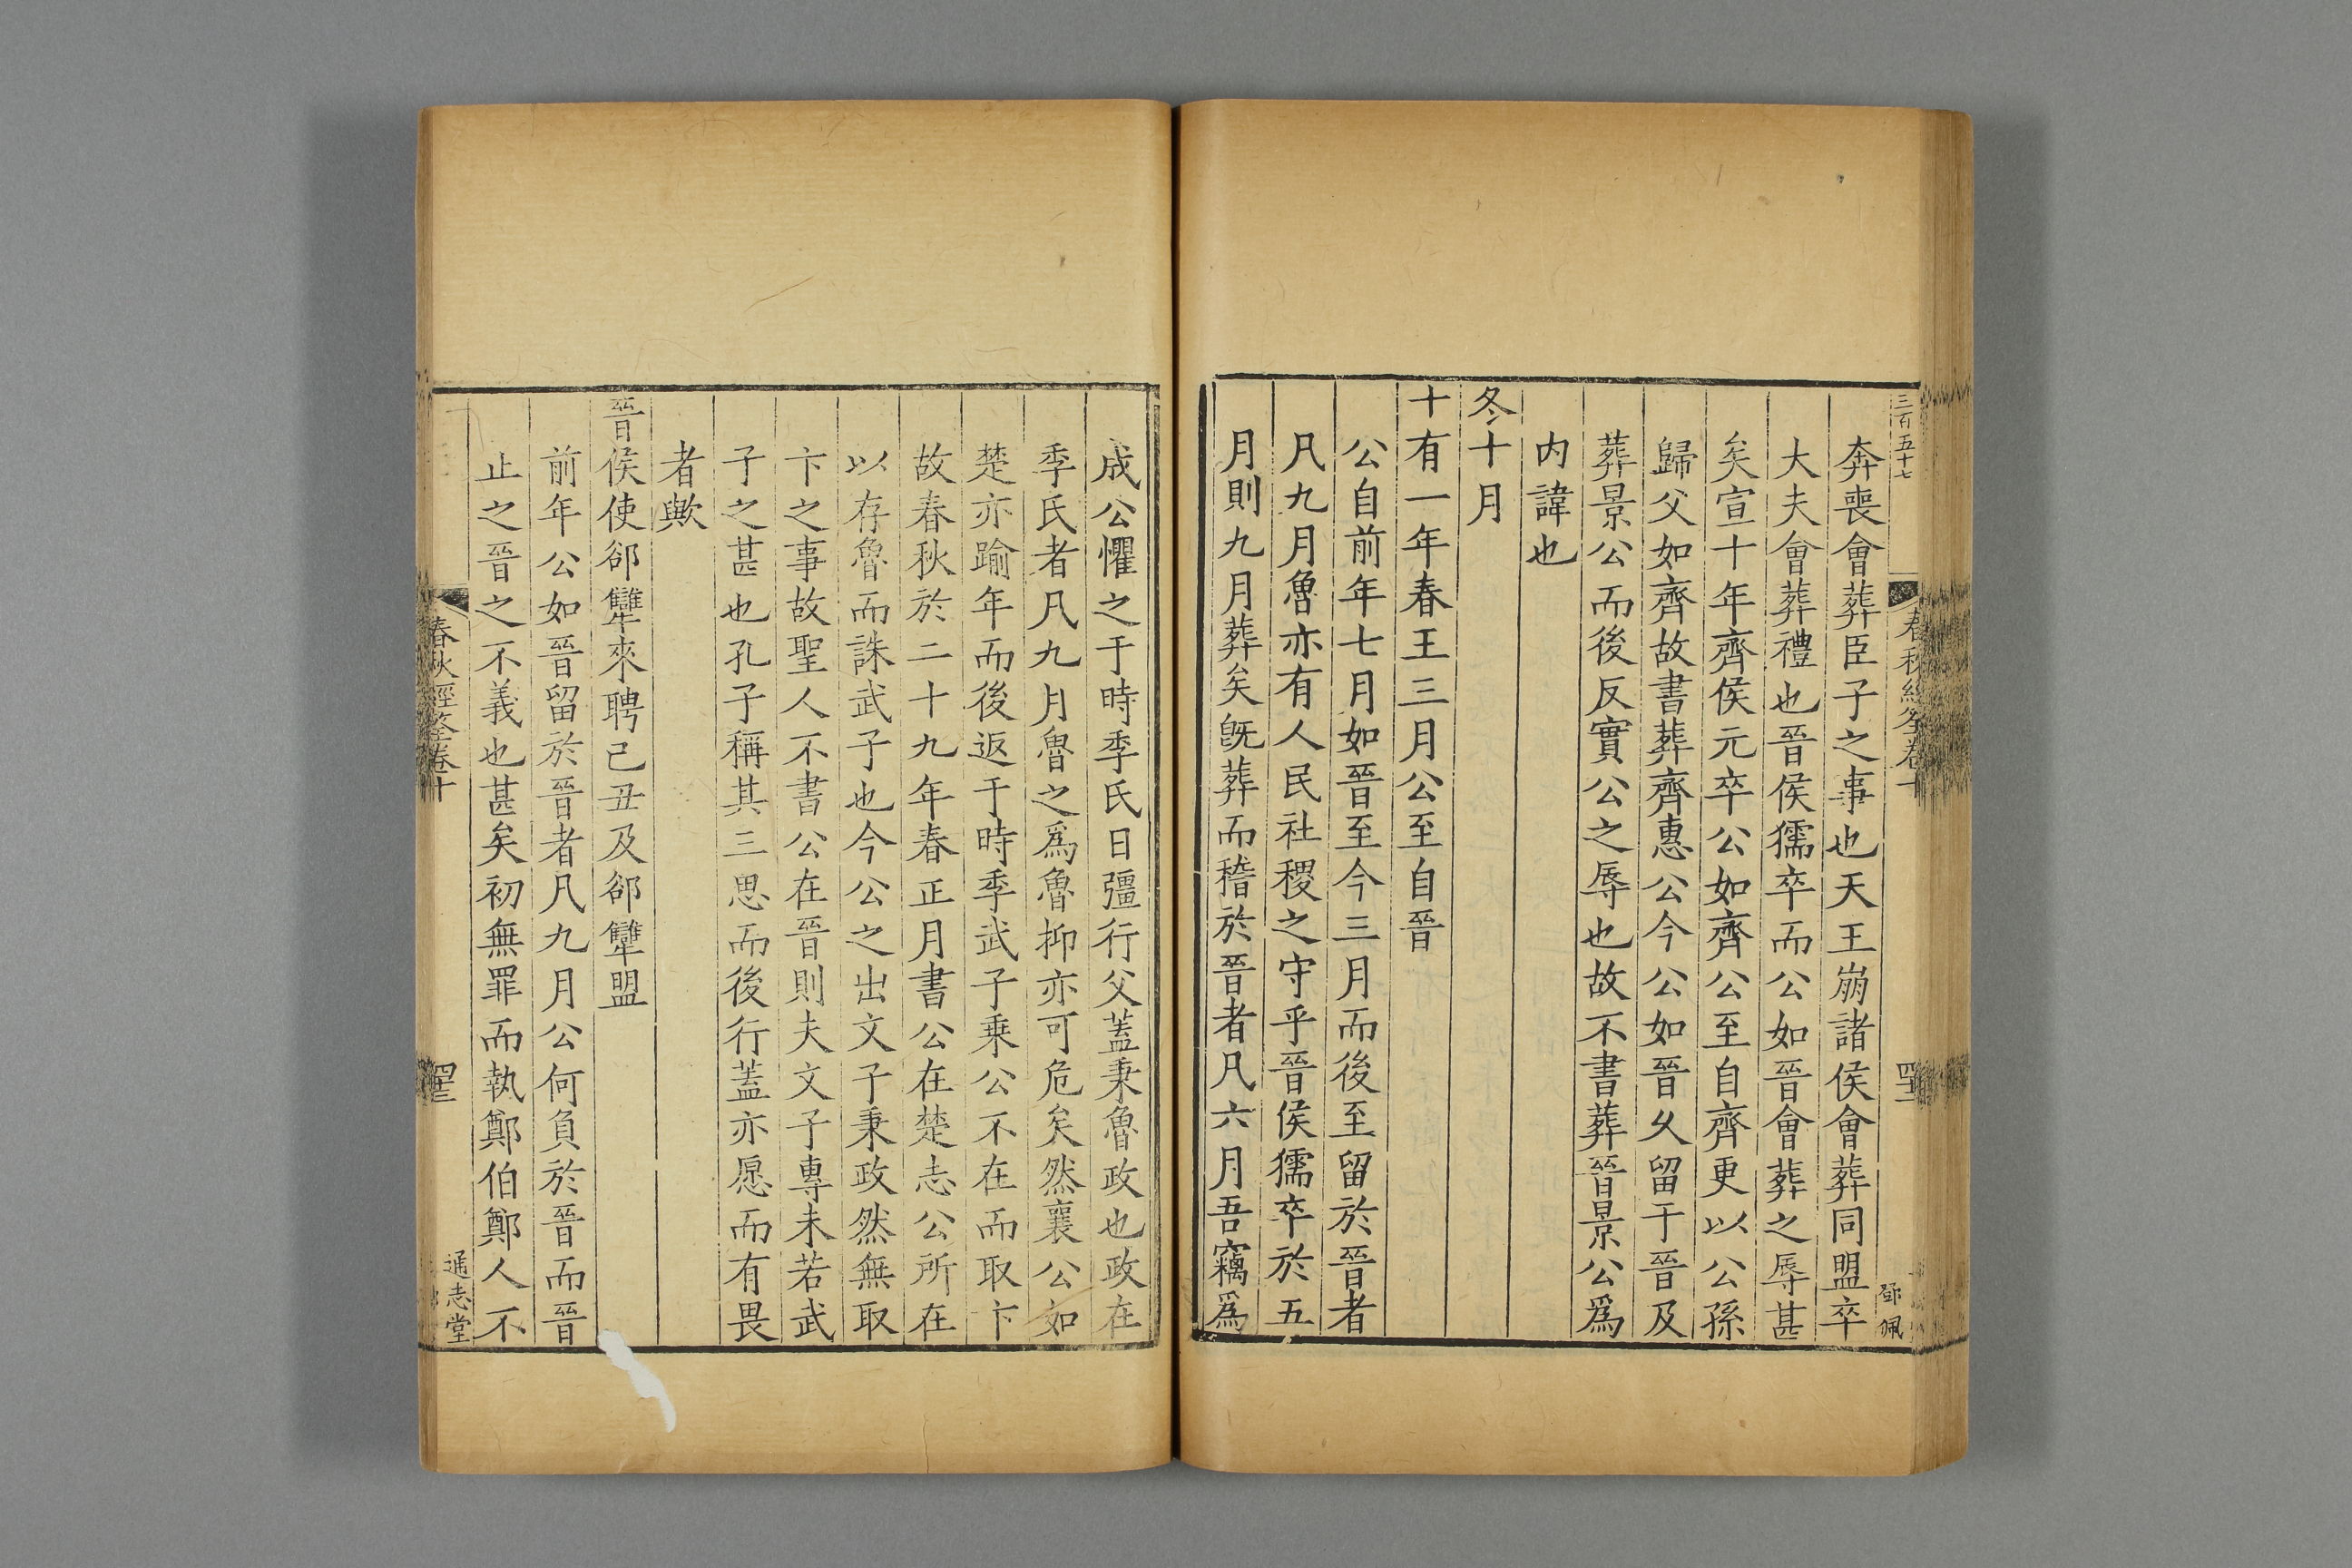 三百五十七
奔喪會葬臣子之事也天王崩諸侯會葬同盟卒
大夫會葬禮也晉侯獳卒而公如晉會葬之辱甚
矣宣十年齊侯元卒公如齊公至自齊更以公孫
歸父如齊故書葬齊惠公今公如晉久留于晉及
葬景公而後反實公之辱也故不書葬晉景公爲
内諱也
冬十月
十有一年春王三月公至自晉
公自前年七月如晉至今三月而後至留於晉者
凡九月魯亦有人民社稷之守乎晉侯獳卒於五
月則九月葬矣旣葬而稽於晉者凡六月吾竊爲
成公懼之于時季氏日彊行父蓋秉魯政也政在
季氏者凡九月魯之爲魯抑亦可危矣然襄公如
楚亦踰年而後返于時季武子乗公不在而取卞
故春秋於二十九年春正月書公在楚志公所在
以存魯而誅武子也今公之出文子秉政然無取
卞之事故聖人不書公在晉則夫文子專未若武
子之甚也孔子稱其三思而後行蓋亦愿而有畏
者歟
晉侯使郤犫來聘己丑及郤犫盟
前年公如晉留於晉者凡九月公何負於晉而晉
止之晉之不義也甚矣初無罪而執鄭伯鄭人不
春秋經筌卷十
通志堂